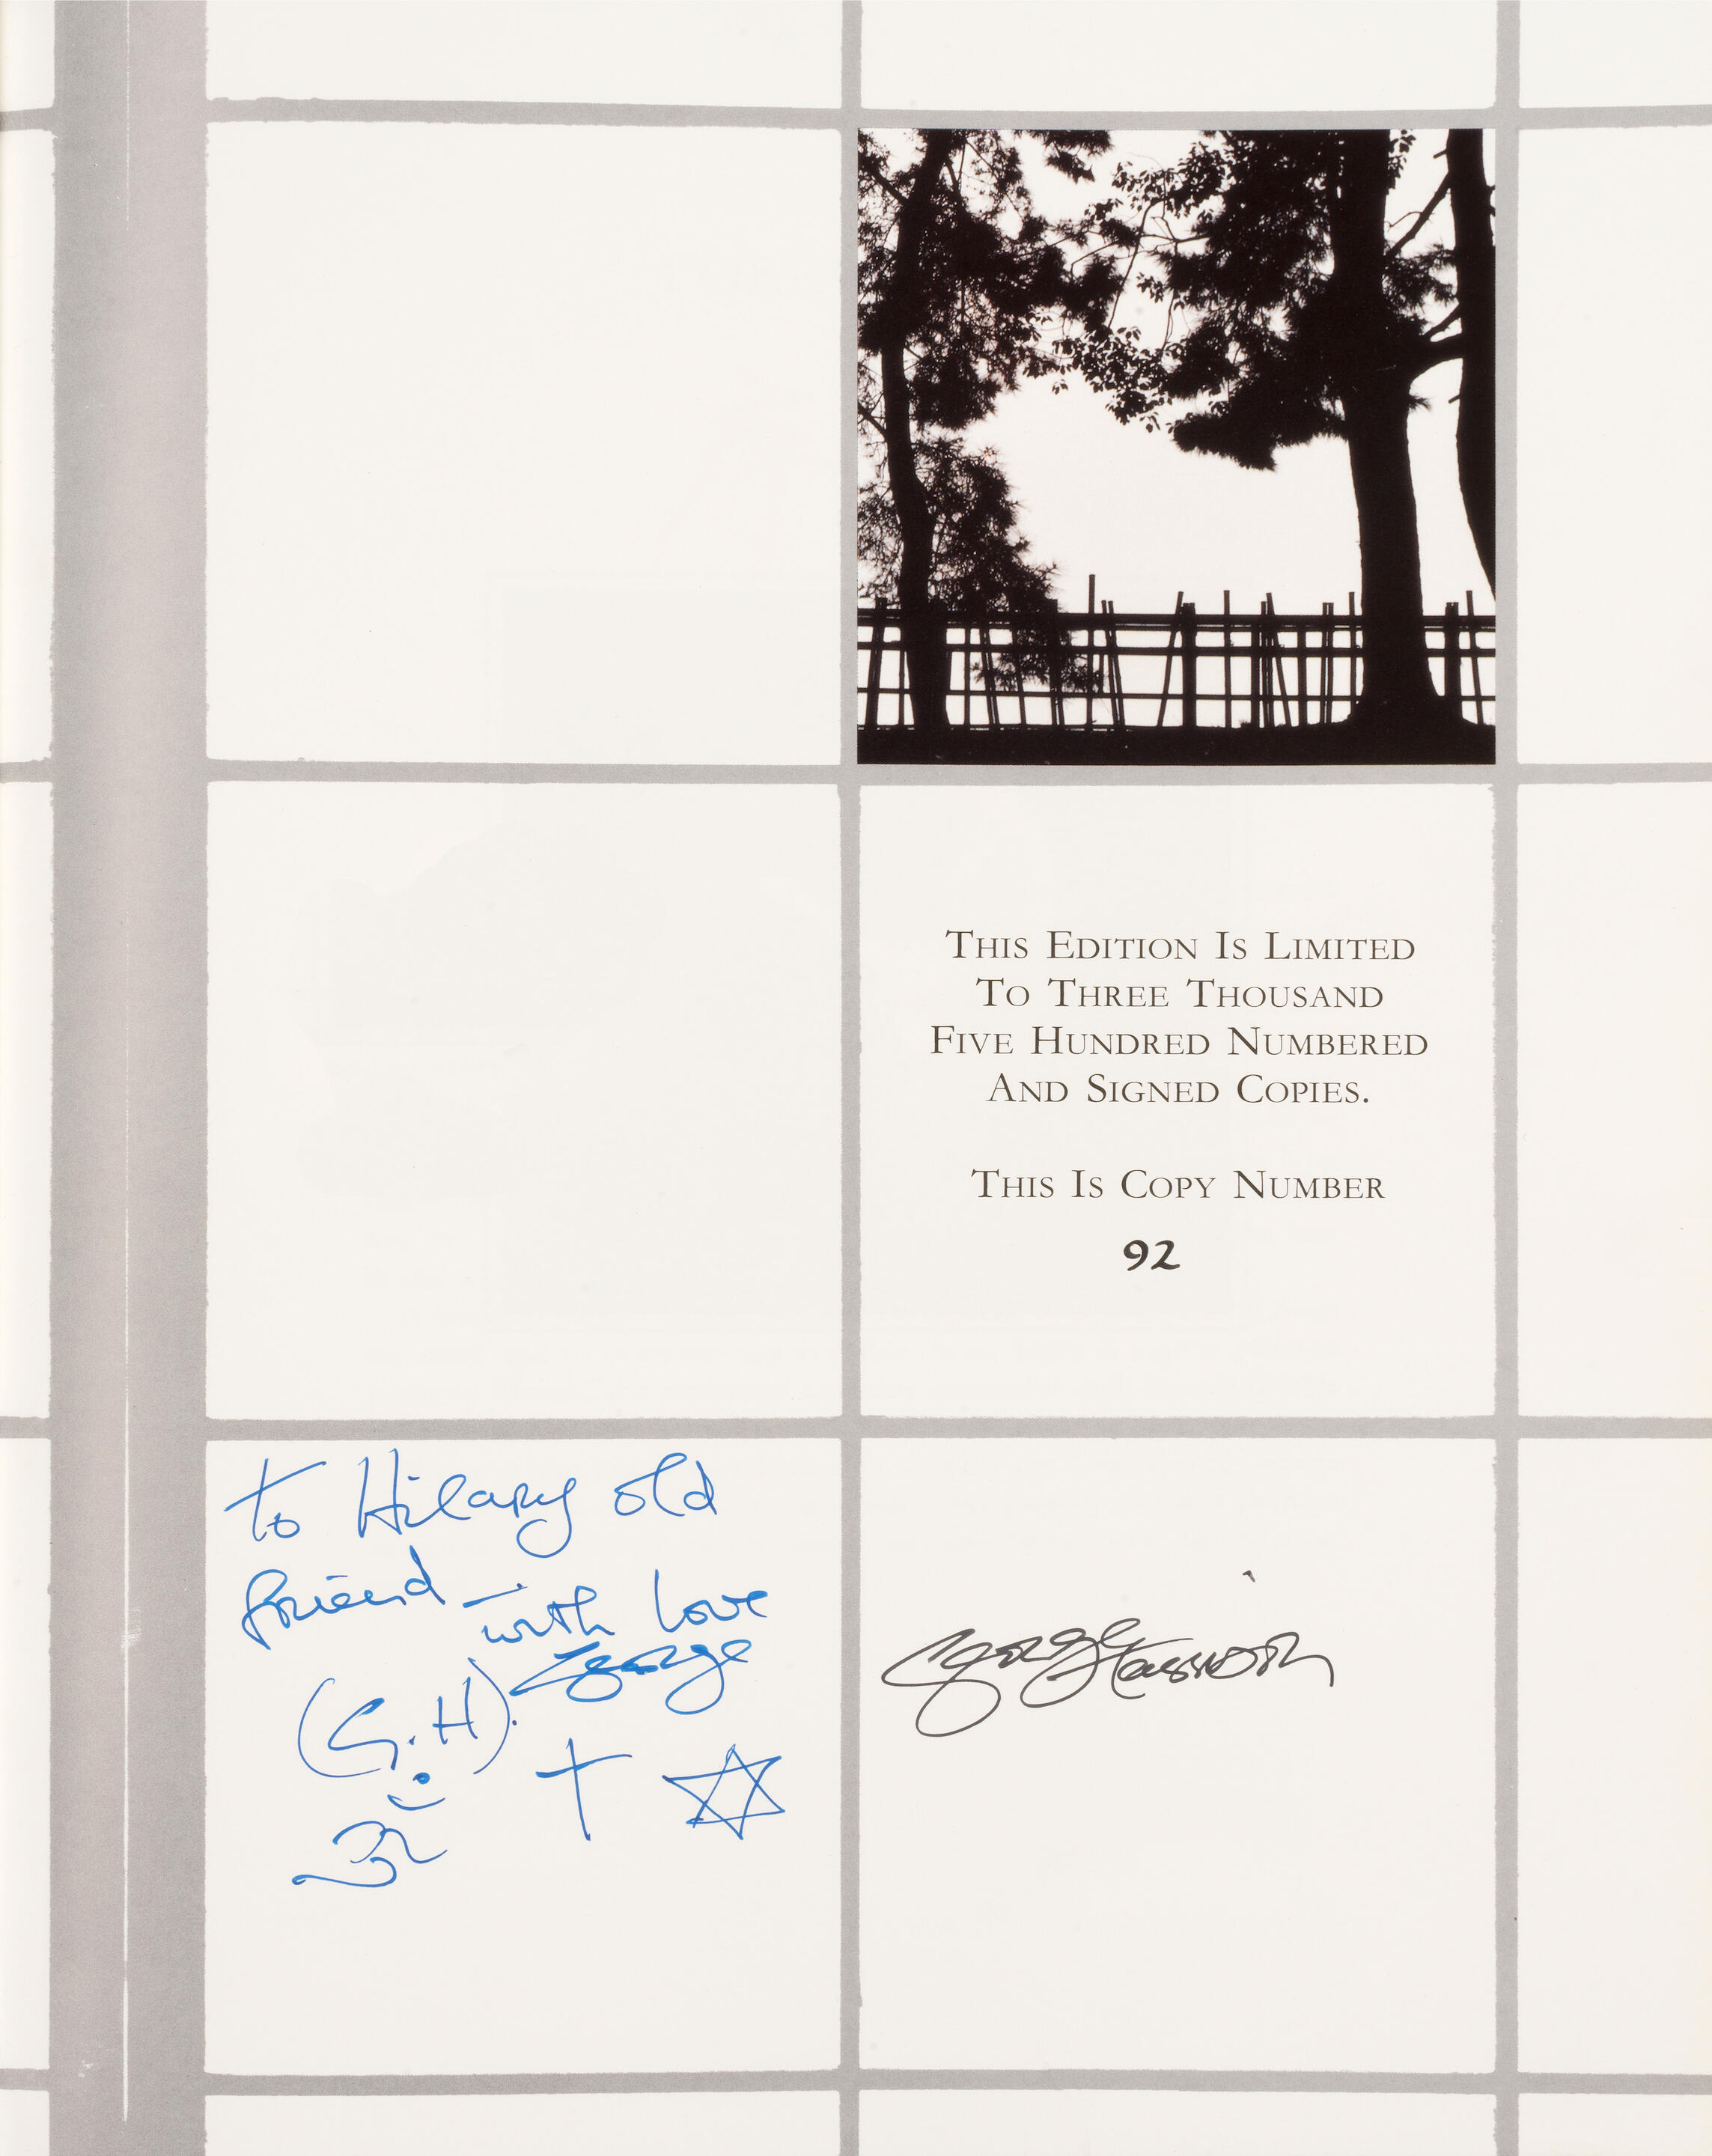 This Edition Is Limited
To Three Thousand
Five Hundred Numbered
And Signed Copies.
This Is Copy Number
92
To Hilary old
friend - with love
George
(G.H).
ॐ
George Harrison